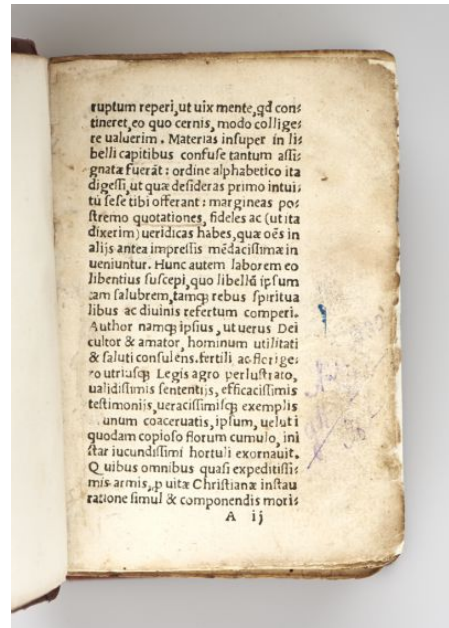 ruptum reperi, ut uix mente, qd con⸗
tineret, eo quo cernis, modo collige⸗
re ualuerim. Materias insuper in li⸗
belli capitibus confuse tantum assi⸗
gnatæ fuerāt: ordine alphabetico ita
digessi, ut quæ desideras primo intui⸗
tu sese tibi offerant: margineas po⸗
stremo quotationes, fideles ac (ut ita
dixerim) ueridicas habes, quæ oēs in
alijs antea impressis mēdacissimæ in
ueniuntur. Hunc autem laborem eo
libentius suscepi, quo libellū ipsum
tam salubrem, tamqꝫ rebus spiritua
libus ac diuinis refertum comperi.
Author namqꝫ ipsius, ut uerus Dei
cultor & amator, hominum utilitati
& saluti consulens. fertili ac florige⸗
ro utriusqꝫ Legis agro perlustrato,
ualidissimis sententijs, efficacissimis
testimonijs, ueracissimisqꝫ exemplis
unum coaceruatis, ipsum, uelut i
quodam copioso florum cumulo, inī
star iucundissimi hortuli exornauit.
Quibus omnibus quasi expeditissi⸗
mis armis, ꝓ uitæ Christianæ instau
ratione simul & componendis mori⸗
A ij